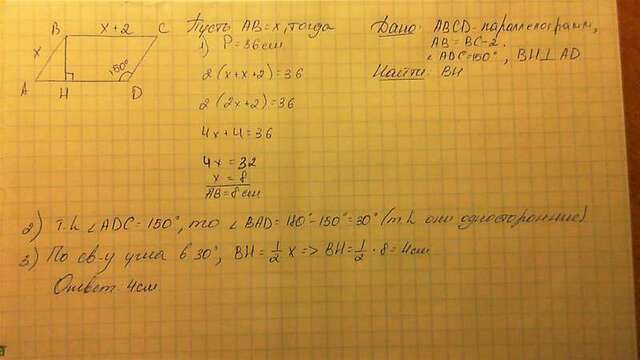 B x+2 C
x
150°
A H D
Пусть AB=x, тогда
1) P=36см
2(x+x+2)=36
2(2x+2)=36
4x+4=36
4x=32
x=8
AB=8см
Дано: ABCD-параллелограмм,
AB=BC-2.
∠ADC=150°, BH⊥AD
Найти: BH
2) т.к ∠ADC=150°, то ∠BAD=180°-150°=30° (т.к они односторонние)
3) По св-у угла в 30°, BH=1/2 x => BH=1/2·8=4см
Ответ: 4см.